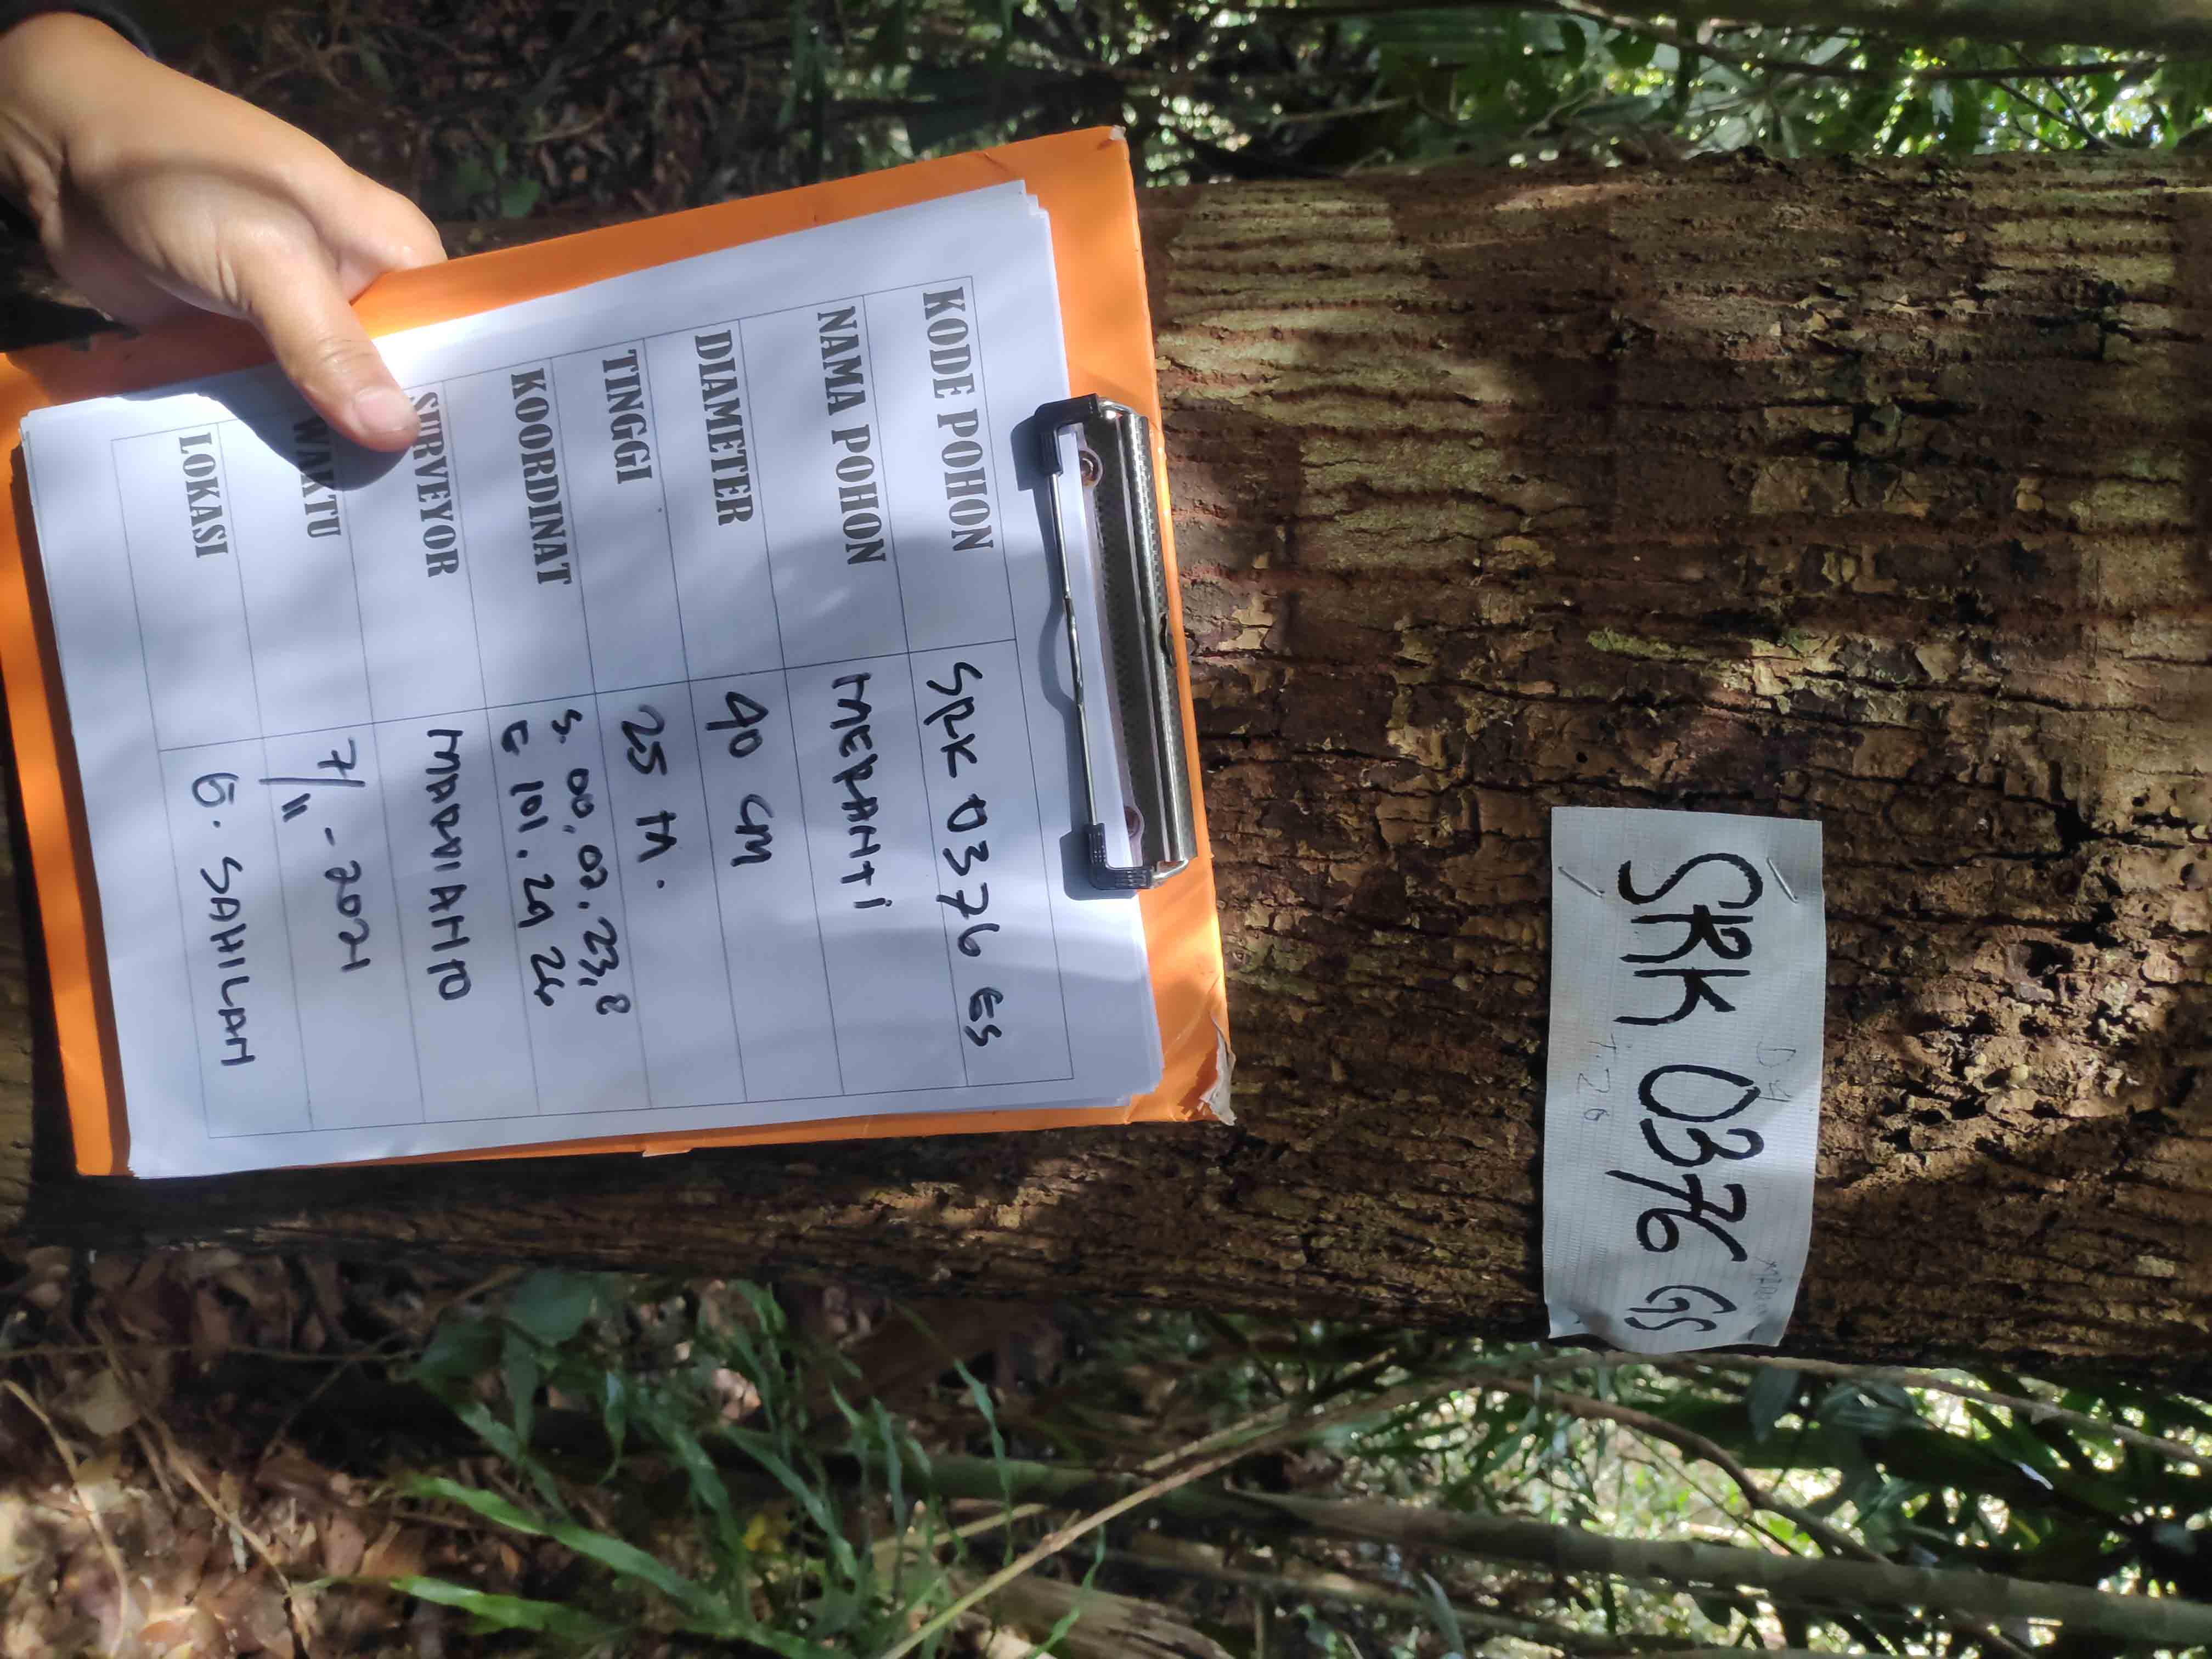 KODE POHON SRK 0376 GS
NAMA POHON MERANTI
DIAMETER 40 CM
TINGGI 25 M.
KOORDINAT S. 00,07.23,8
E 101. 29 24
SURVEYOR MARDIANTO
WAKTU 7/11 - 2021
LOKASI G. SAHILAN
SRK 0376 GS